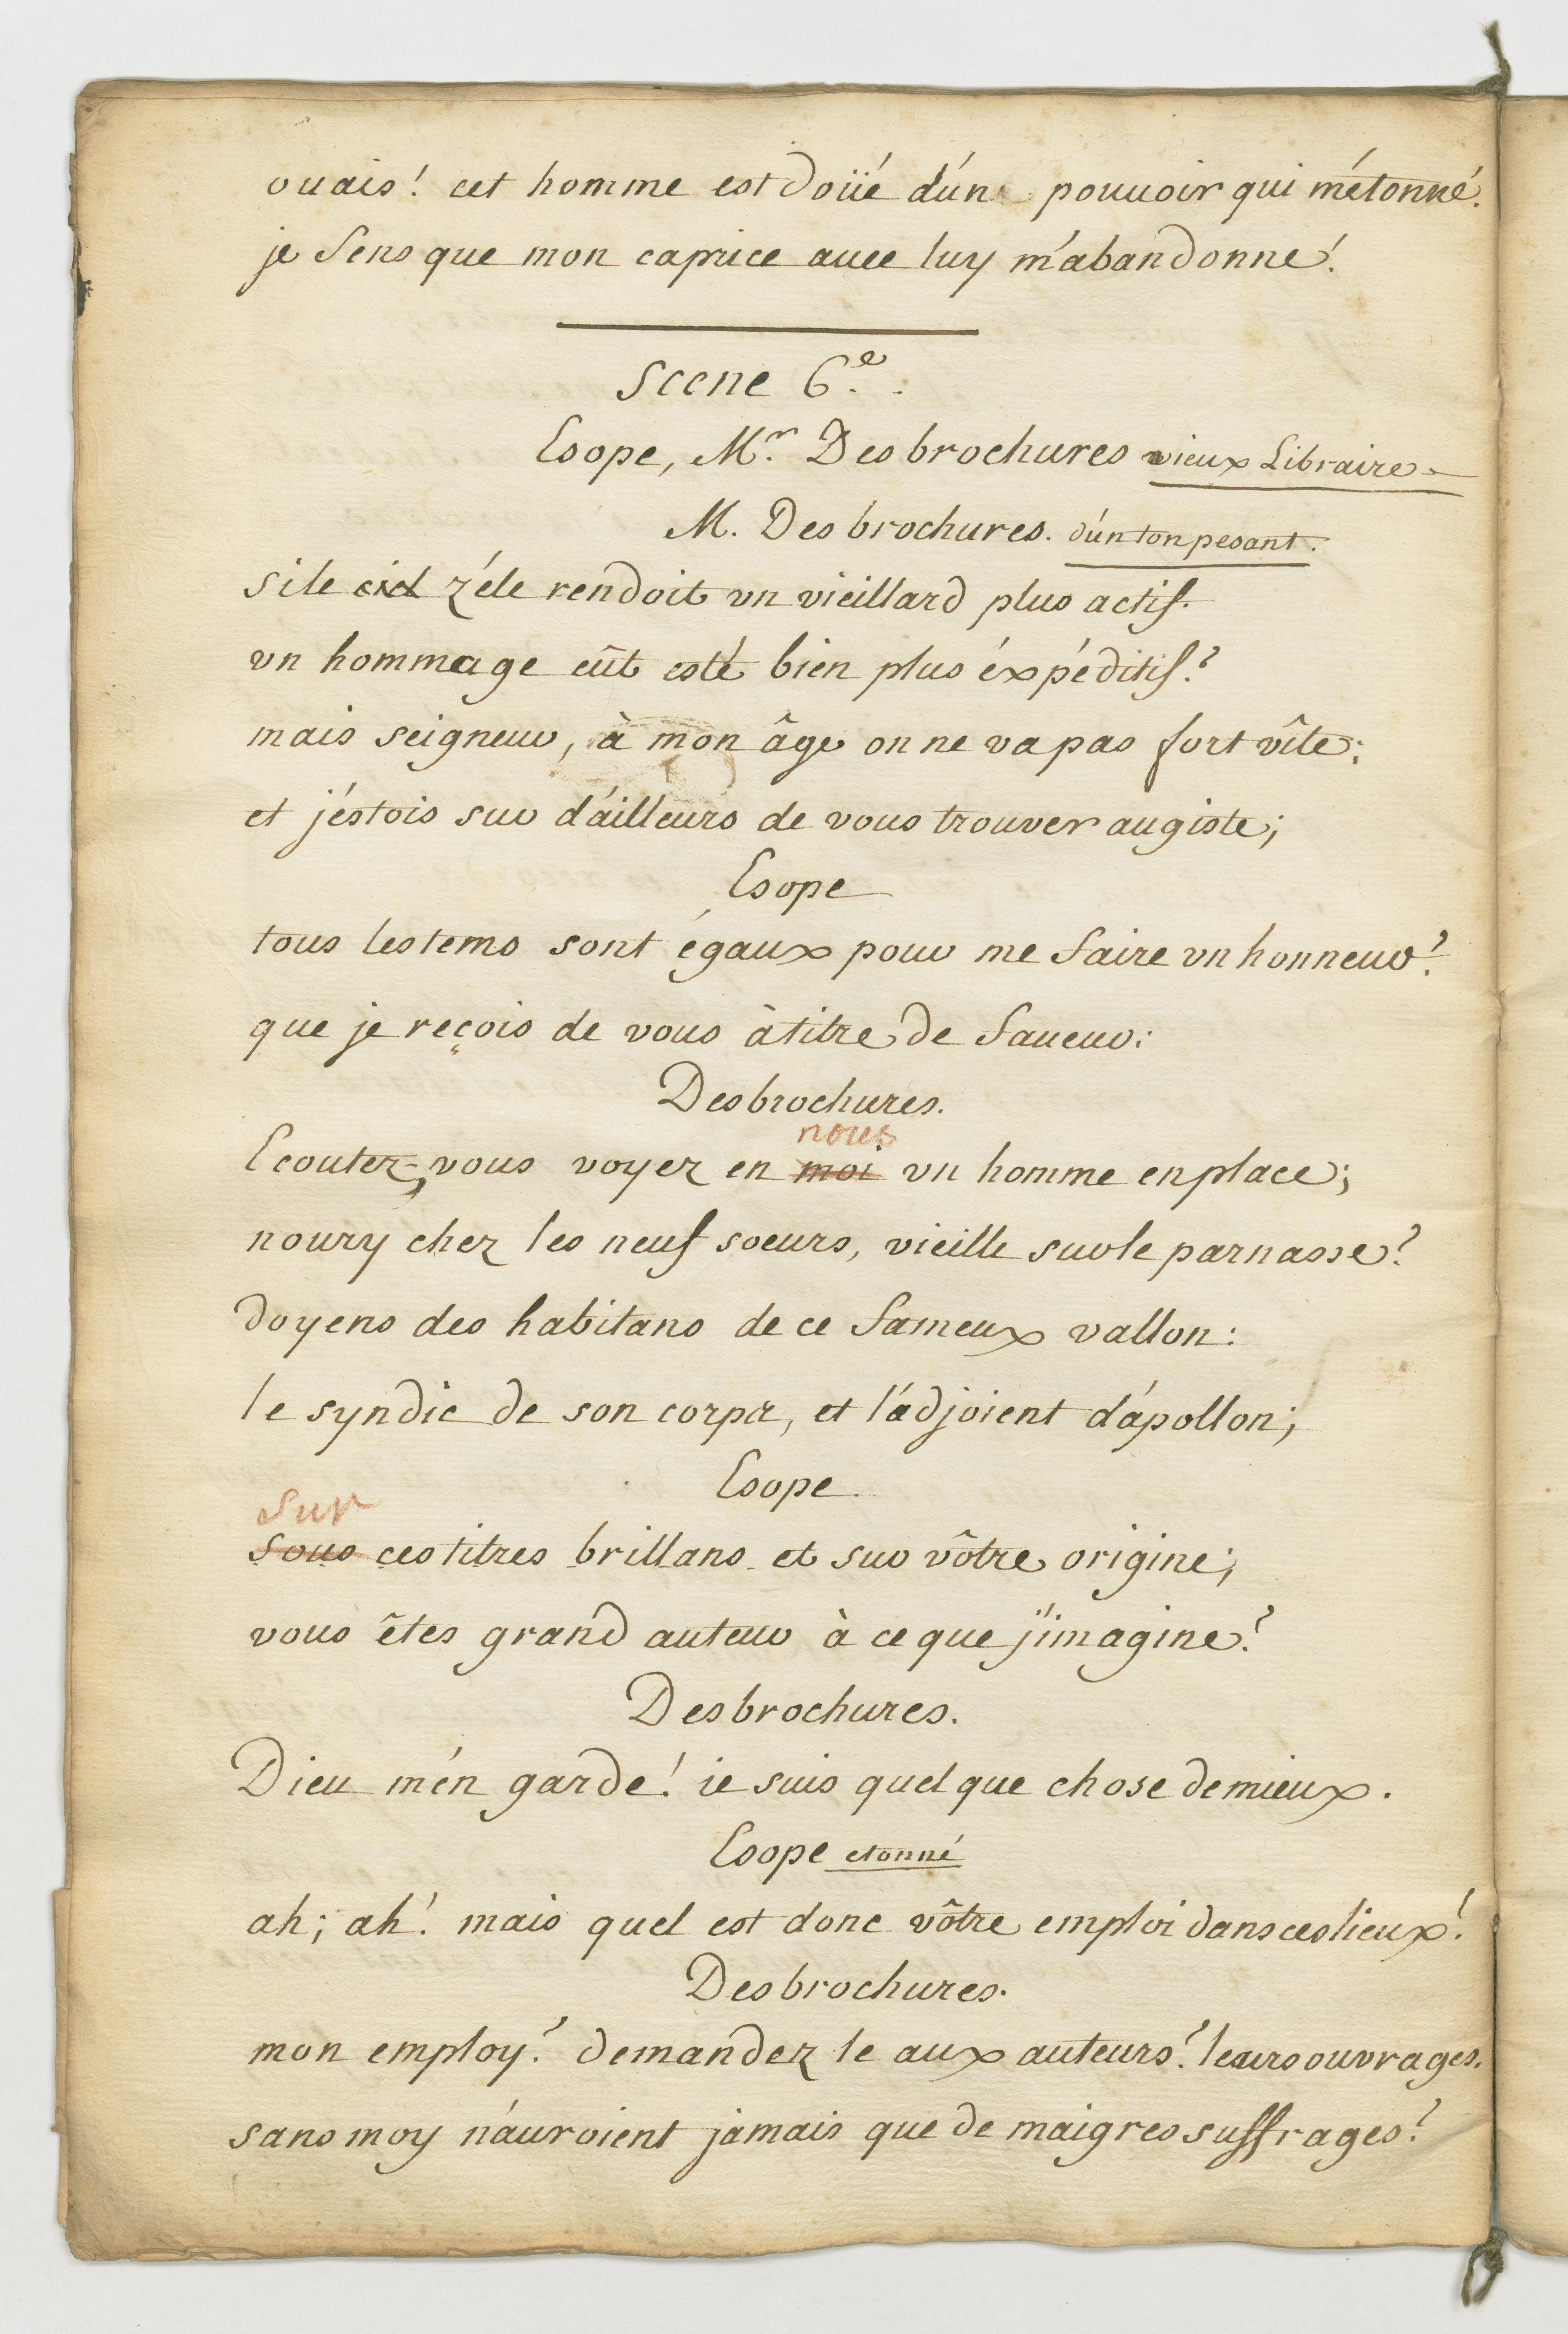 ouais! cet homme est doüé d'un pouuoir qui m'étonné.
je sens que mon caprice auec luy m'abandonne!
Scene 6.e
Esope, Mr. Desbrochures vieux Libraire
M. Desbrochures. d'un ton pesant.
si le ciel zéle rendoit un vieillard plus actif.
un hommage eût esté bien plus éxpéditif?
mais seigneur, à mon âge on ne va pas fort vîte;
et j'estois sur d'ailleurs de vous trouver au giste;
Esope
tous les tems sont égaux pour me faire un honneur?
que je reçois de vous à titre de faueur:
Desbrochures.
nous
Ecoutez, vous voyez en moi un homme en place;
noury chez les neuf soeurs, vieilli sur le parnasse?
doyens des habitans de ce fameux vallon:
le syndic de son corps, et l'adjoient d'apollon;
Esope.
sur
sous ces titres brillans et sur vôtre origine;
vous êtes grand auteur à ce que j'imagine?
Desbrochures.
Dieu m'en garde! ie suis quelque chose de mieux.
Esope etonné
ah; ah! mais quel est donc vôtre emploi dans ces lieux!
Desbrochures.
mon employ? demandez le aux auteurs? leurs ouvrages.
sans moy n'auroient jamais que de maigres suffrages?